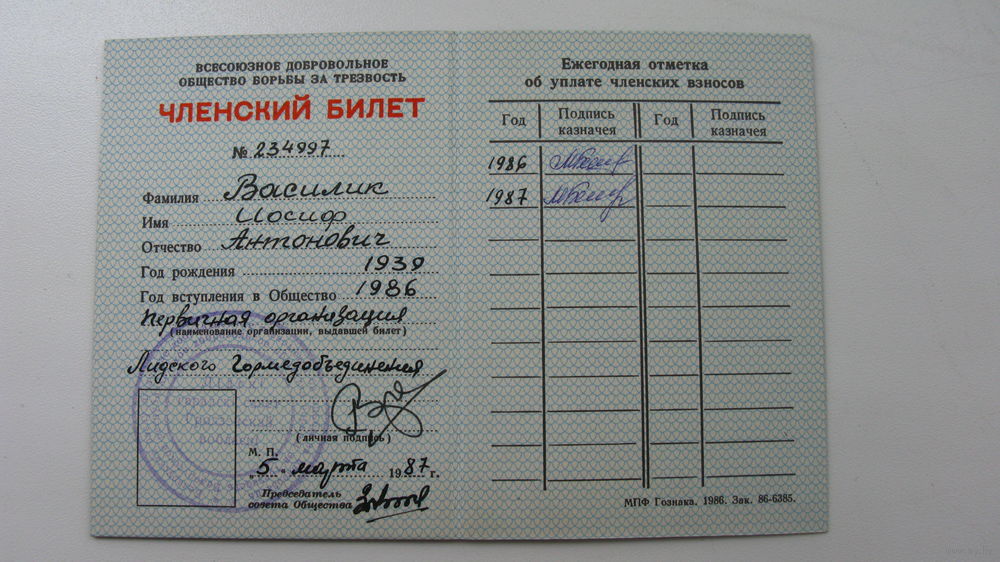 ВСЕСОЮЗНОЕ ДОБРОВОЛЬНОЕ
ОБЩЕСТВО БОРЬБЫ ЗА ТРЕЗВОСТЬ
ЧЛЕНСКИЙ БИЛЕТ
№ 234997
Фамилия Василик
Имя Иосиф
Отчество Антонович
Год рождения 1939
Год вступления в Общество 1986
Первичная организация
(наименование организации, выдавшей билет)
Лидского Гормедобъединения
(личная подпись)
М. П.
„5 “ марта 1987 г.
Председатель
совета Общества
Ежегодная отметка
об уплате членских взносов
Год Подпись казначея Год Подпись казначея
1986
1987
МПФ Гознака. 1986. Зак. 86-6385.